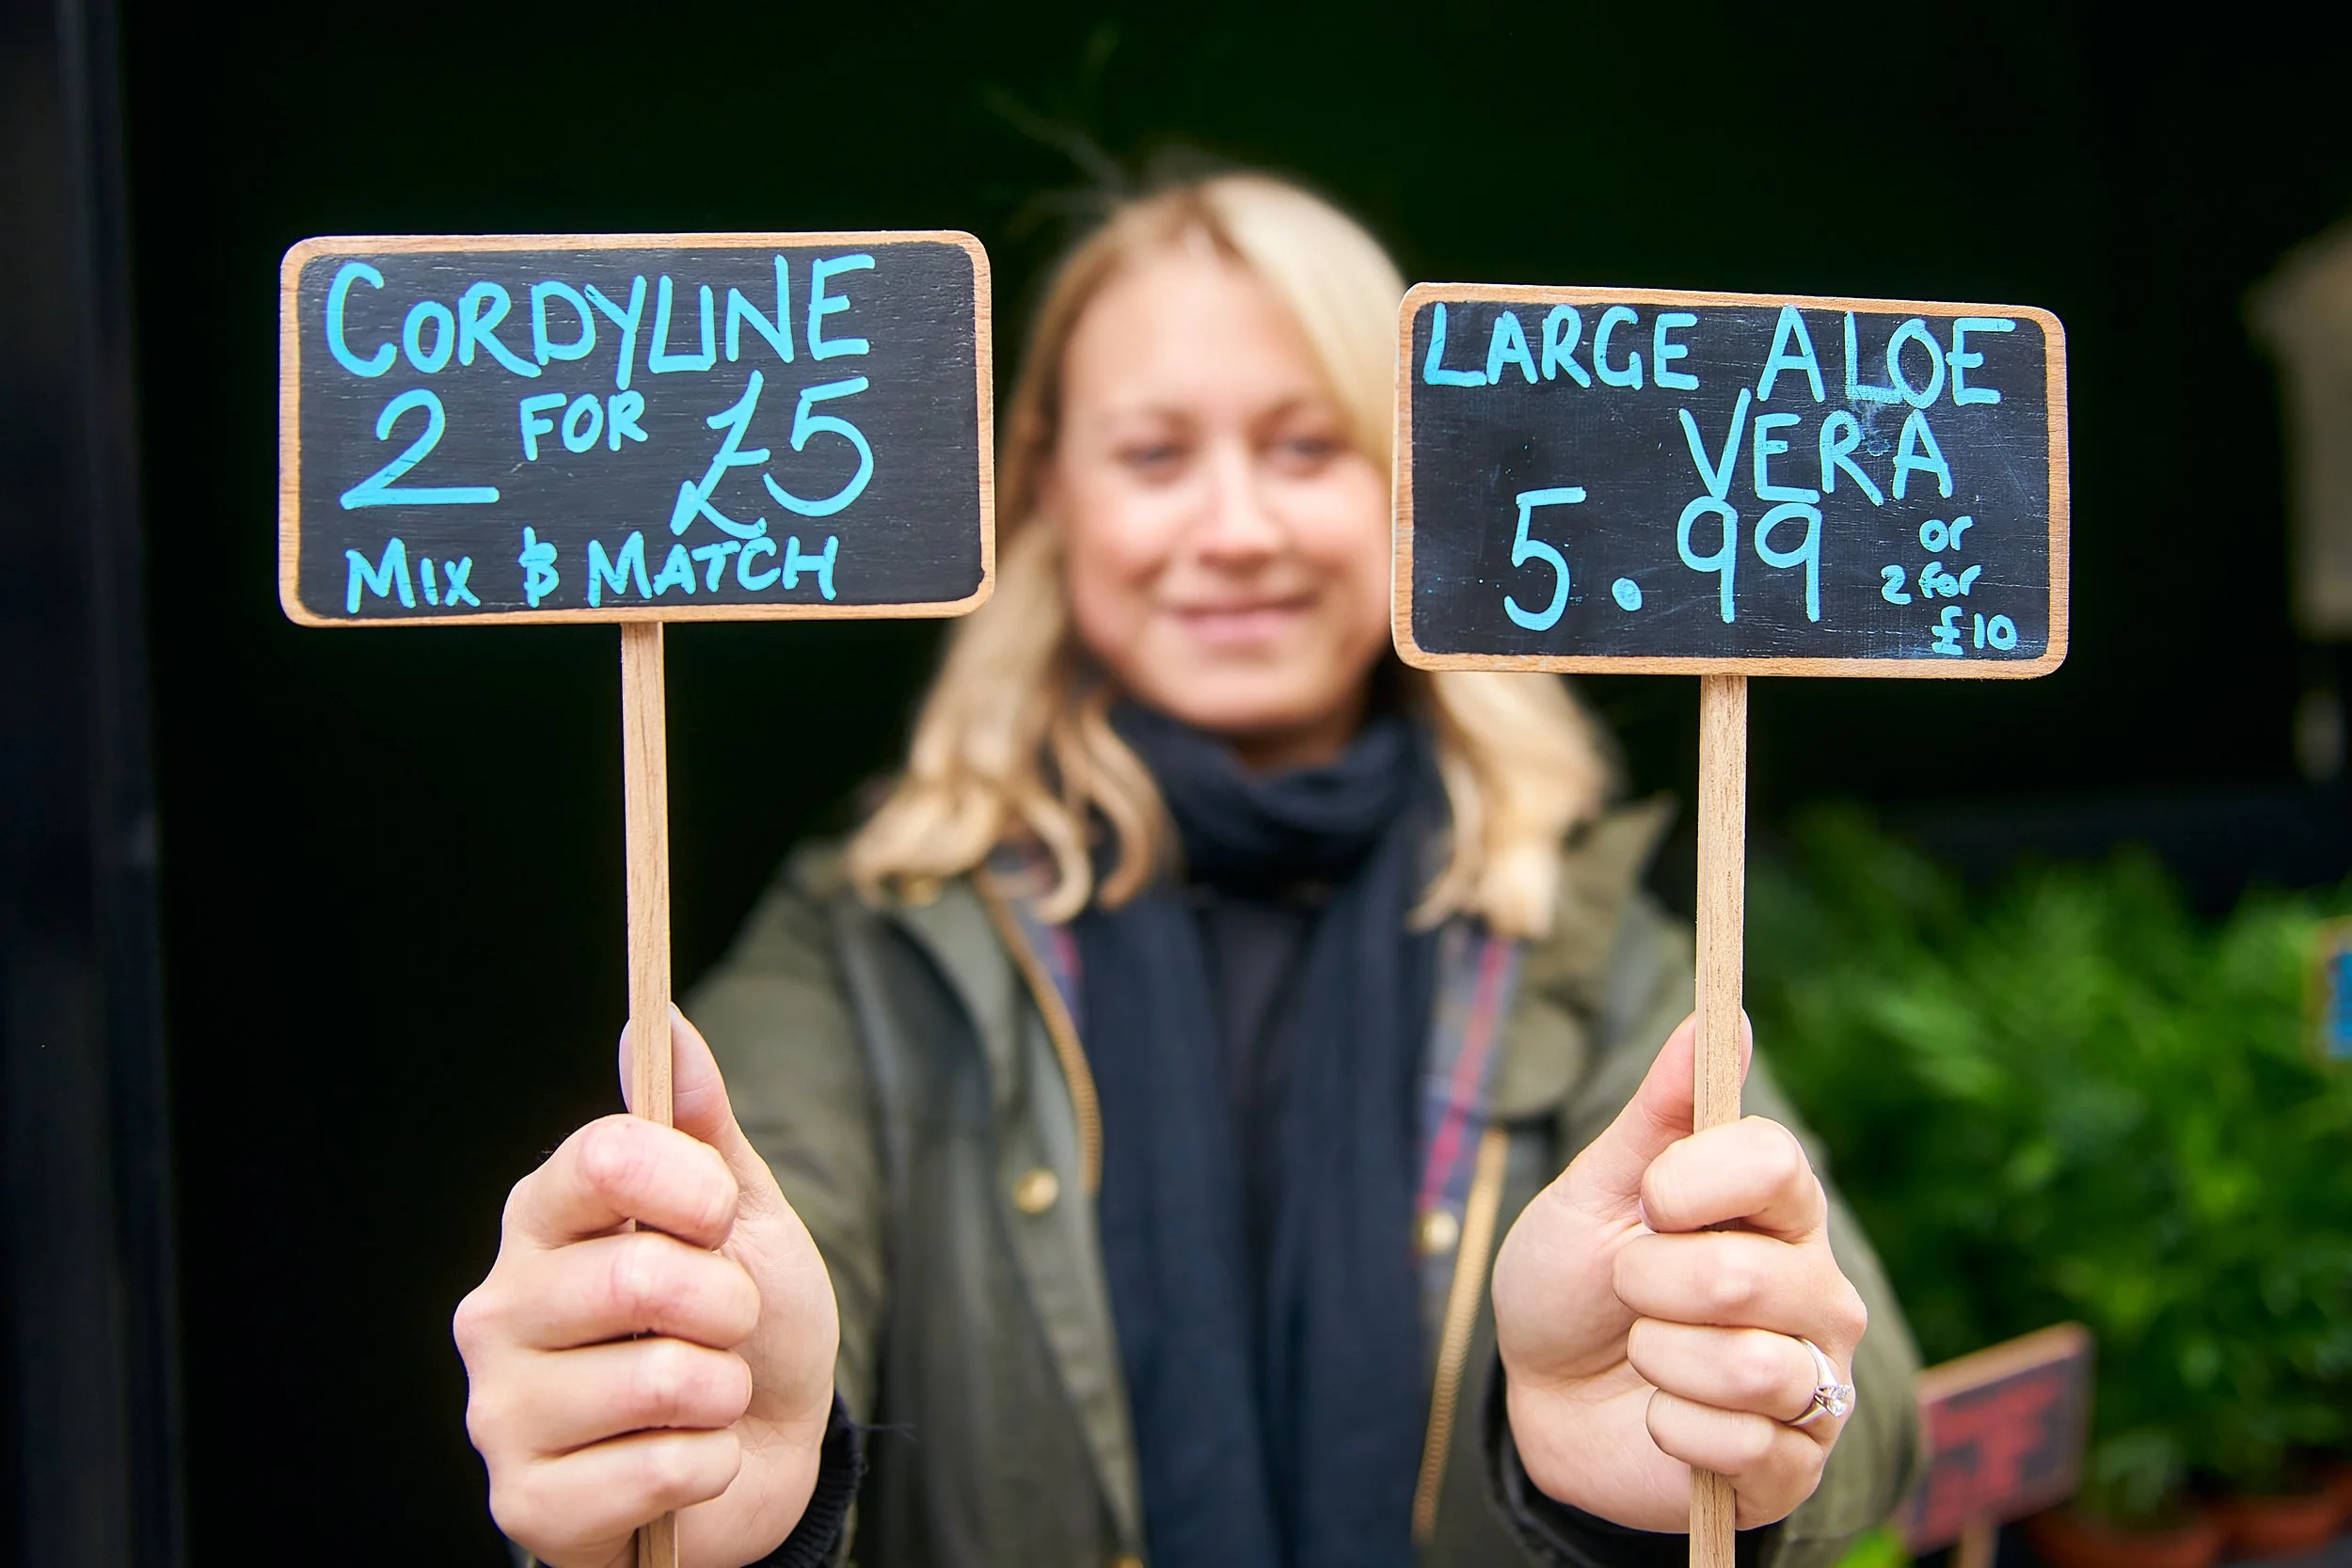 CORDYLINE
2 FOR £5
MIX & MATCH
LARGE ALOE
VERA
5.99 or
2 for
£10